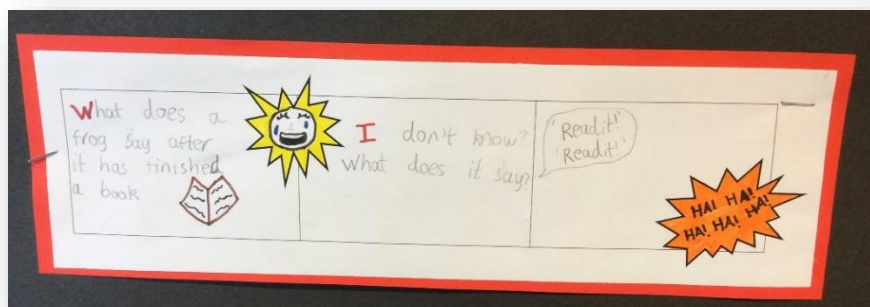 What does a
frog say after
it has finished
a book
I don't know?
What does it say?
'Readit!'
'Readit!'
HA! HA!
HA! HA! HA!